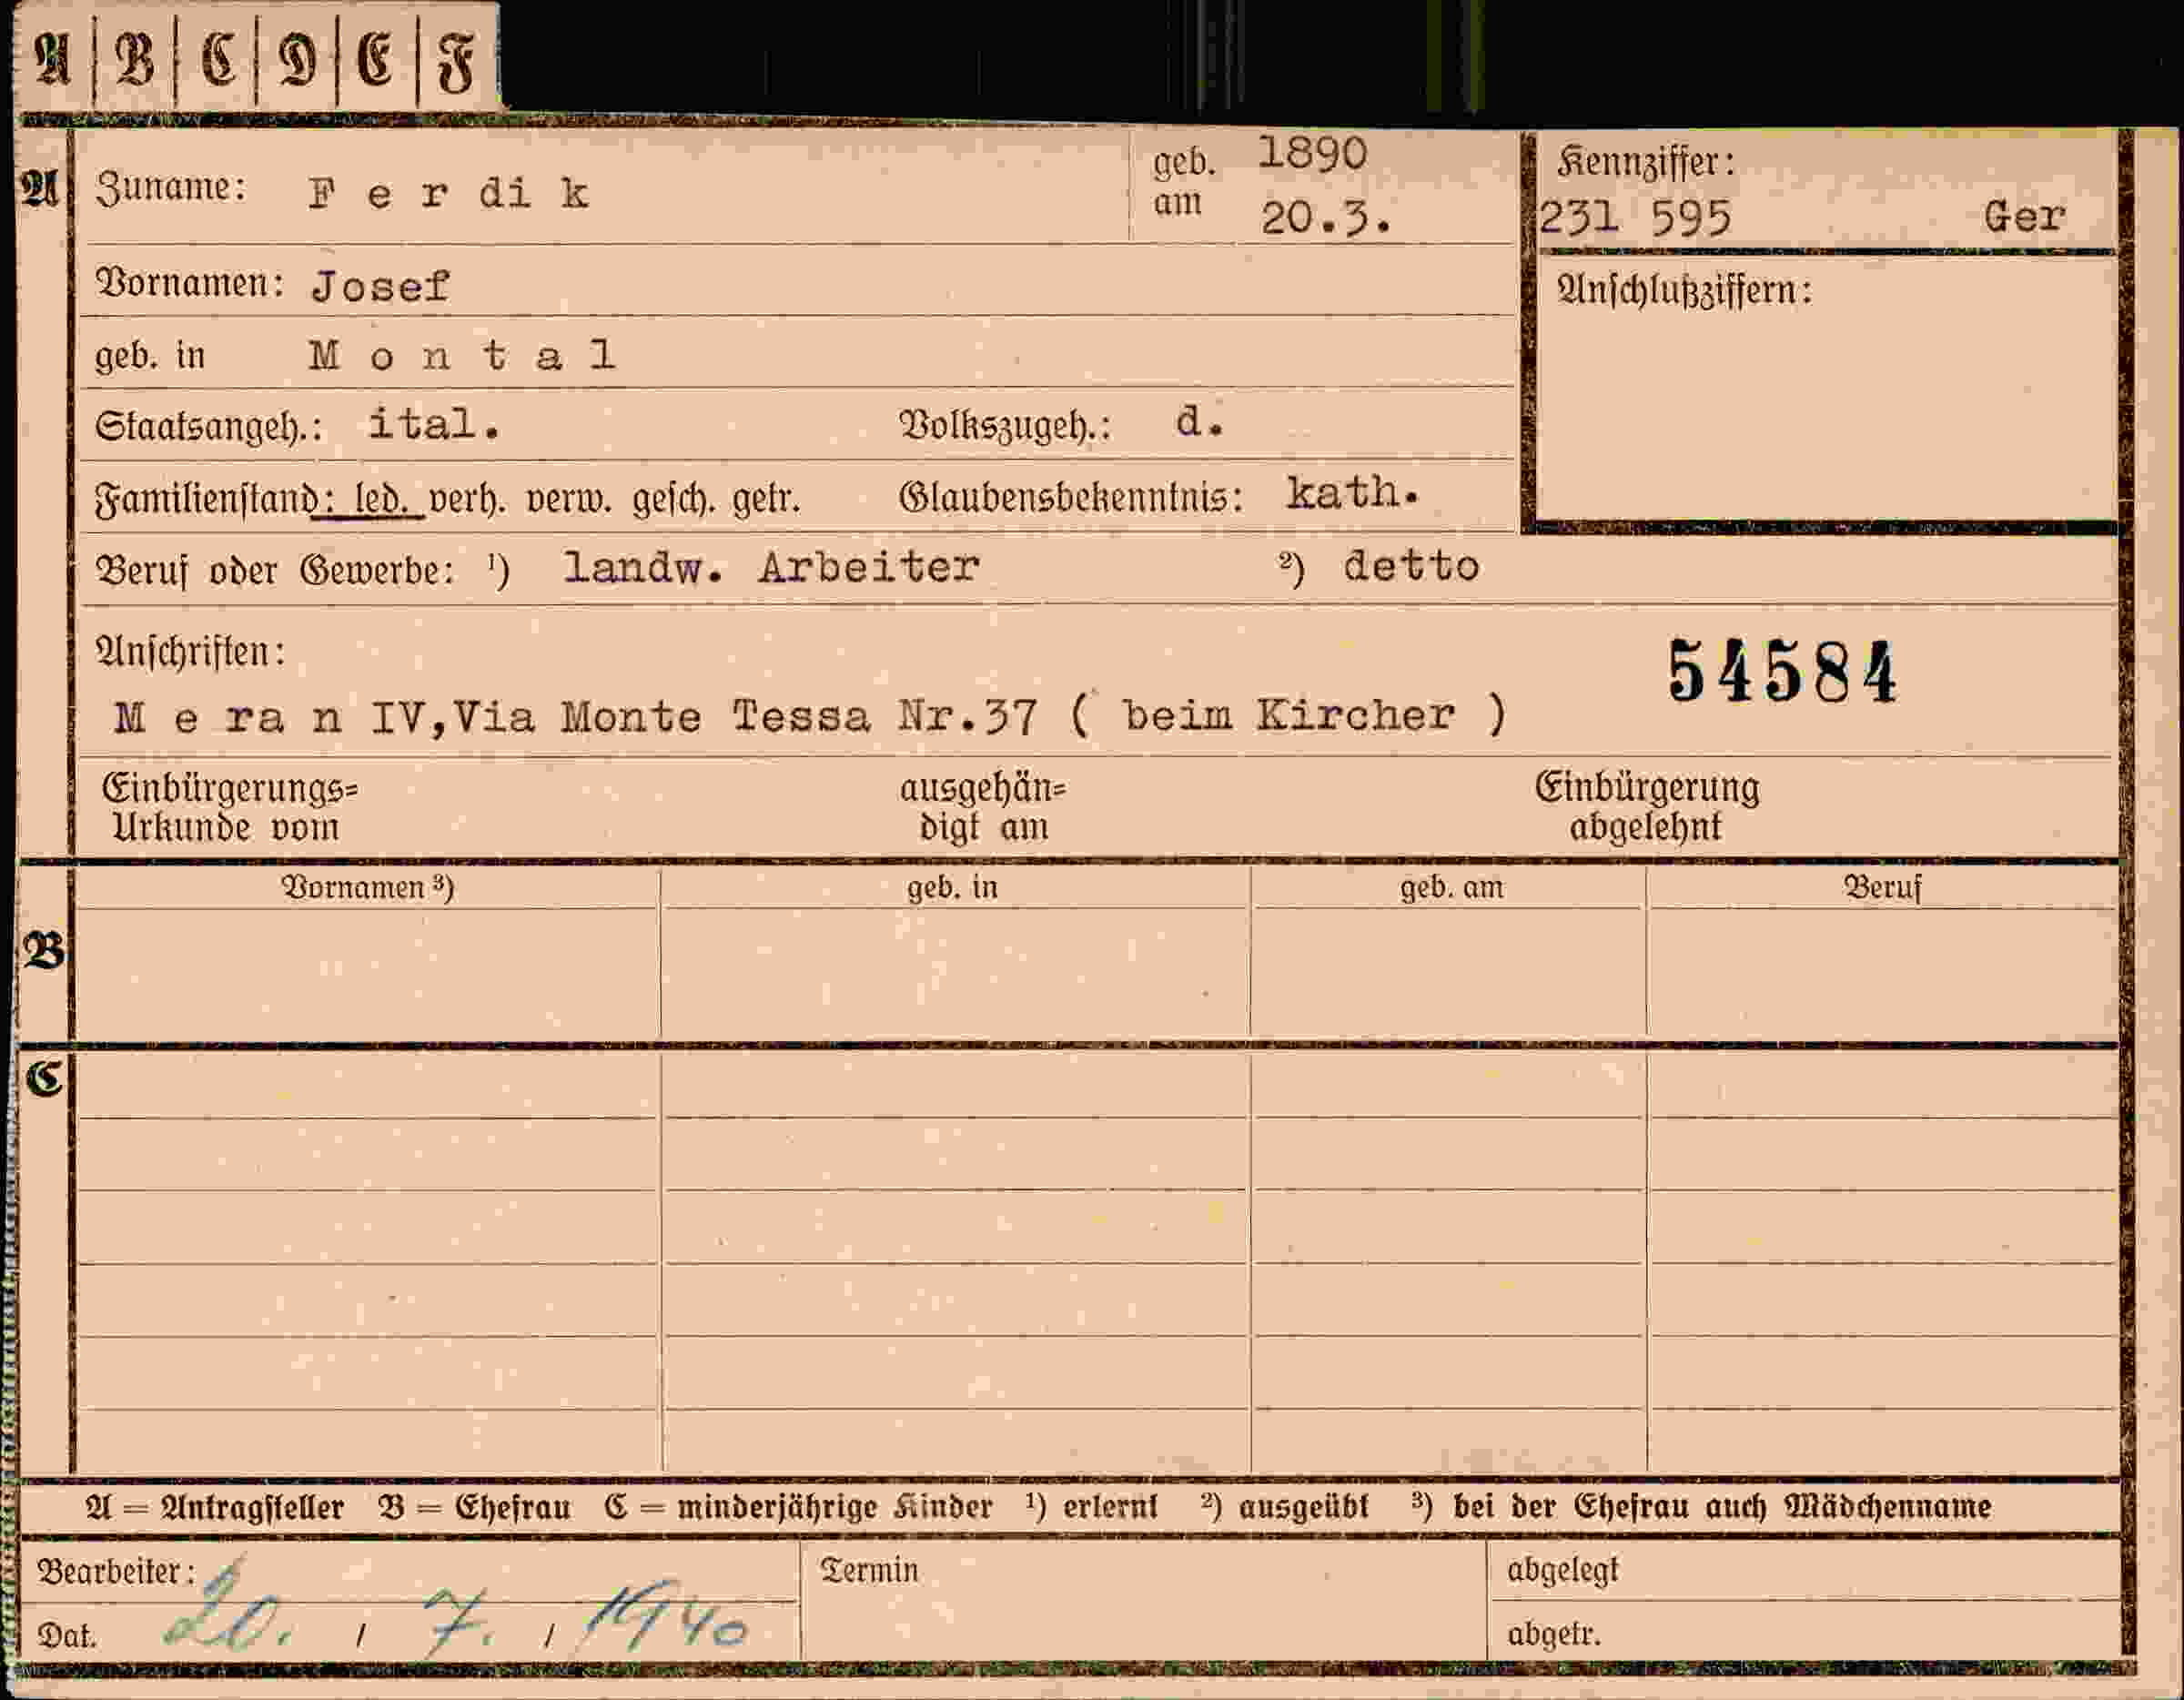 A | B | C | D | E | F
A Zuname: F e r di k geb. am 1890 20.3. Kennziffer: 231 595 Ger
Vornamen: Josef Anschlußziffern:
geb. in M o n t a l
Staatsangeh.: ital. Volkszugeh.: d.
Familienstand: led. verh. verw. gesch. getr. Glaubensbekenntnis: kath.
Beruf oder Gewerbe: ¹) landw. Arbeiter ²) detto
Anschriften: 54584
M e ra n IV,Via Monte Tessa Nr.37 ( beim Kircher )
Einbürgerungs= ausgehän= Einbürgerung
Urkunde vom digt am abgelehnt
Vornamen ³) geb. in geb. am Beruf
B
C
A = Antragsteller B = Ehefrau C = minderjährige Kinder ¹) erlernt ²) ausgeübt ³) bei der Ehefrau auch Mädchenname
Bearbeiter: Termin abgelegt
Dat. 20. / 7. / 1940 abgetr.